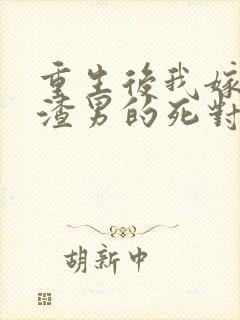 重生後我嫁
渣男的死對
胡新中